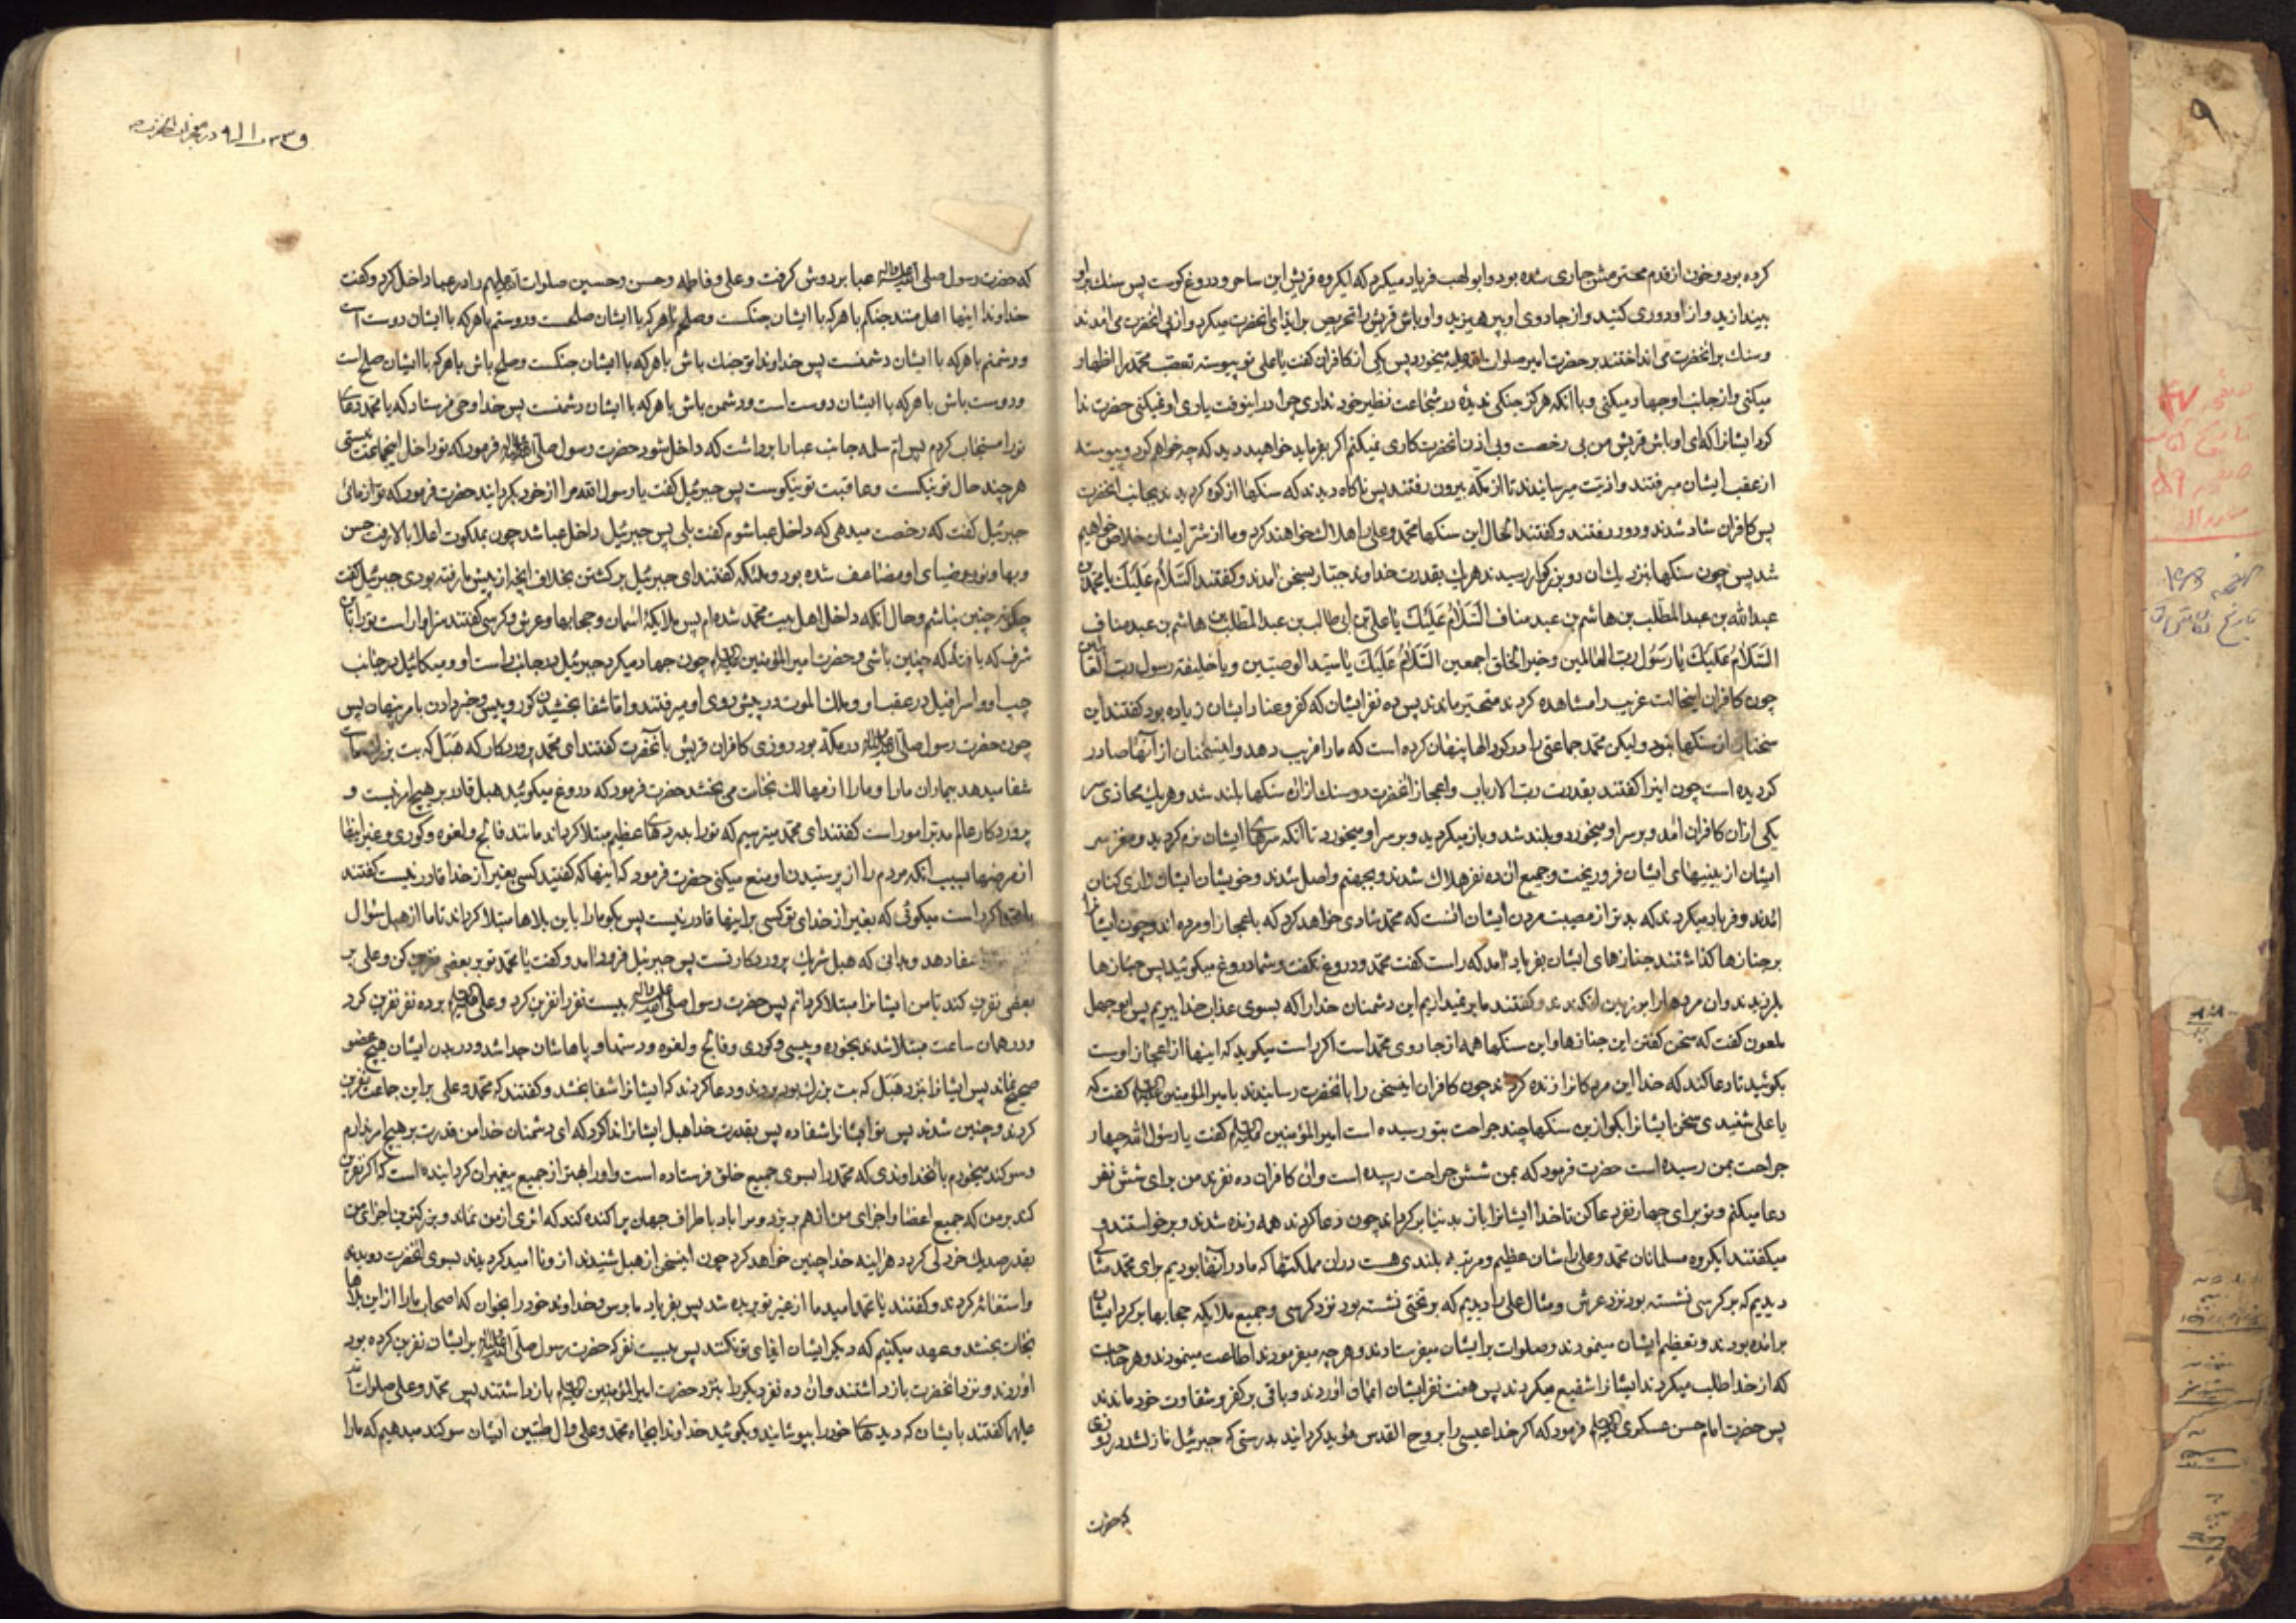 کرده بود و خون از قدم محترمش جاری شده بود و ابولهب فریاد میکرد که ایکروه قریش این ساحر و دروغ کوست پس سنک براو
بیندازید و از او دوری کنید و از جادوی او بپرهیزید و اوباش قریش را تحریص بر ایذای انحضرت میکرد و از پی انحضرت می امدند
و سنک بر انحضرت می انداختند بر حضرت امیر صلوات الله علیه میخورد پس یکی از کافران کفت یا علی تو پیوسته تعصب محمد را اظهار
میکنی و از جانب او جهاد میکنی و با انکه هرکز جنکی ندیدهٔ در شجاعت نظیر خود نداری چرا در اینوقت یاری او نمیکنی حضرت ندا
کرد ایشانرا که ای اوباش قریش من بی رخصت و بی اذن انحضرت کاری نمیکنم اکر بفرماید خواهید دید که چه خواهم کرد و پیوسته
از عقب ایشان میرفتند و اذیت میرسانیدند تا از مکه بیرون رفتند پس ناکاه دیدند که سنکها از کوه کردیدند بجانب انحضرت
پس کافران شاد شدند و دور رفتند و کفتند الحال این سنکها محمد و علی را هلاک خواهند کرد و ما از شر ایشان خلاص خواهیم
شد پس چون سنکها بنزدیک ان دو بزرکوار رسیدند هریک بقدرت خداوند جبار بسخن امدند و کفتند السلام علیک یا محمد بن
عبدالله بن عبدالمطلب بن هاشم بن عبد مناف السلام علیک یا علی بن ابی طالب بن عبدالمطلب بن هاشم بن عبد مناف
السلام علیک یا رسول رب العالمین و خیر الخلق اجمعین السلام علیک یا سید الوصیین و یا خلیفه رسول رب العالمین
چون کافران اینحالت غریب را مشاهده کردند متحیر ماندند پس ده نفر ایشان که کفر و عناد ایشان زیاده بود کفتند این
سخنان از سنکها نبود ولیکن محمد جماعتی را در کودالها پنهان کرده است که ما را فریب دهد و اینسخنان از آنها صادر
کردیده است چون اینرا کفتند بقدرت رب الارباب و اعجاز انحضرت دو سنک از ان سنکها بلند شد و هریک بمحاذی سر
یکی از ان کافران امد و بر سر او میخورد و بلند شد و باز میکردید و بر سر او میخورد تا انکه سرهای ایشان نرم کردید و مغز سر
ایشان از بینیهای ایشان فرو ریخت و جمیع ان ده نفر هلاک شدند و بجهنم واصل شدند و خویشان ایشان زاری کنان
امدند و فریاد میکردند که بدتر از مصیبت مردن ایشان انست که محمد شادی خواهد کرد که باعجاز او مرده اند و چون ایشانرا
بر جنازها کذاشتند جنازهای ایشان بفریاد امد که راست کفت محمد و دروغ نکفت و شما دروغ میکوئید پس جنازها
بلرزیدند و ان مردهارا بر زمین افکندند و کفتند ما بر نمیداریم این دشمنان خدا را که بسوی عذاب خدا ببریم پس ابوجهل
ملعون کفت که سخن کفتن این جنازها و این سنکها همه از جادوی محمد است اکر راست میکوید که اینها از اعجاز اوست
بکوئید تا دعا کند که خدا این مردکانرا زنده کرداند چون کافران اینسخن را بانحضرت رسانیدند بامیر المؤمنین علیه السلام کفت که
یا علی شنیدی سخن ایشانرا بکو از ین سنکها چند جراحت بتو رسیده است امیر المؤمنین علیه السلام کفت یا رسول الله چهار
جراحت بمن رسیده است حضرت فرمود که بمن شش جراحت رسیده است و ان کافران ده نفرند من برای شش نفر
دعا میکنم و تو برای چهار نفر دعا کن تا خدا ایشانرا باز بدنیا برکرداند چون دعا کردند همه زنده شدند و برخواستند و
میکفتند ایکروه مسلمانان محمد و علی را شان عظیم و مرتبه بلندی هست در ان مملکتها که ما در آنها بودیم برای محمد مثالی
دیدیم که بر کرسی نشسته بود نزد عرش و مثال علی را دیدیم که بر تختی نشسته بود نزد کرسی و جمیع ملایکه حجابها بر کرد ایشان
برامده بودند و تعظیم ایشان مینمودند و صلوات بر ایشان میفرستادند و هرچه میفرمودند اطاعت مینمودند و هر حاجت
که از خدا طلب میکردند ایشانرا شفیع میکردند پس هفت نفر ایشان ایمان اوردند و باقی بر کفر و شقاوت خود ماندند
پس حضرت امام حسن عسکری علیه السلام فرمود که اکر خدا عیسی را بروح القدس مؤید کردانید بدرستی که جبرئیل نازل شد در روزی
که حضرت
که حضرت رسول صلی الله علیه و اله عبا بر دوش کرفت و علی و فاطمه و حسن و حسین صلوات الله علیهم را در عبا داخل کرد و کفت
خداوندا اینها اهل منند جنکم با هرکه با ایشان جنکست و صلحم با هرکه با ایشان صلحست و دوستم با هرکه با ایشان دوست است
و دشمنم با هرکه با ایشان دشمنست پس خداوندا تو جنک باش با هرکه با ایشان جنکست و صلح باش با هرکه با ایشان صلح است
و دوست باش با هرکه با ایشان دوست است و دشمن باش با هرکه با ایشان دشمنست پس خدا وحی فرستاد که یا محمد دعای
تو را مستجاب کردم پس ام سلمه جانب عبا را برداشت که داخل شود حضرت رسول صلی الله علیه و اله فرمود که تو داخل اینجماعت نیستی
هرچند حال تو نیکست و عاقبت تو نیکوست پس جبرئیل کفت یا رسول الله مرا از خود بکردانید حضرت فرمود که تو از مائی
جبرئیل کفت که رخصت میدهی که داخل عبا شوم کفت بلی پس جبرئیل داخل عبا شد چون بملکوت اعلا بالا رفت حسن
و بها و نور و ضیای او مضاعف شده بود و ملئکه کفتند ای جبرئیل برکشتن بخلاف انچه از پیش ما رفته بودی جبرئیل کفت
چکونه چنین نباشم و حال انکه داخل اهل بیت محمد شده ام پس ملایکهٔ اسمان و حجابها و عرش و کرسی کفتند سزاوار است تو را این
شرف که یافتهٔ که چنین باشی و حضرت امیر المؤمنین علیه السلام چون جهاد میکرد جبرئیل در جانب راست او و میکائیل در جانب
چپ او و اسرافیل در عقب او و ملک الموت در پیش روی او میرفتند و اما شفا بخشیدن کور و پیس و خبر دادن بامر پنهان پس
چون حضرت رسول صلی الله علیه و اله در مکه بود روزی کافران قریش بآنحضرت کفتند ای محمد پروردکار که هبل که بت بزرک ماست
شفا میدهد بیماران ما را و ما را از مهالک نجات می بخشد حضرت فرمود که دروغ میکوئید هبل قادر بر هیچ امر نیست و
پروردکار عالم مدبر امور است کفتند ای محمد میترسیم که تو را بدردهای عظیم مبتلا کرداند مانند فالج و لقوه و کوری و غیر اینها
از مرضها بسبب انکه مردم را از پرستیدن او منع میکنی حضرت فرمود که اینها که کفتید کسی بغیر از خدا قادر نیست کفتند
یا محمد اکر راست میکوئی که بغیر از خدای تو کسی بر اینها قادر نیست پس بکو ما را باین بلاها مبتلا کرداند تا ما از هبل سؤال
شفا دهد و بدانی که هبل شریک پروردکار تست پس جبرئیل فرود امد و کفت یا محمد تو بر بعضی نفرین کن و علی بر
بعضی نفرین کند تا من ایشانرا مبتلا کردانم پس حضرت رسول صلی الله علیه و اله بیست نفر را نفرین کرد و علی علیه السلام بر ده نفر نفرین کرد
و در همان ساعت مبتلا شدند بخوره و پیسی و کوری و فالج و لقوه و دستها و پاهاشان جدا شد و در بدن ایشان هیچ عضو
صحیح نماند پس ایشانرا بنزد هبل که بت بزرک بود بردند و دعا کردند که ایشانرا شفا بخشد و کفتند که محمد و علی بر این جماعت نفرین
کردند و چنین شدند پس تو ایشانرا شفا ده پس بقدرت خدا هبل ایشانرا ندا کرد که ای دشمنان خدا من قدرت بر هیچ امر ندارم
و سوکند میخورم بانخداوندی که محمد را بسوی جمیع خلق فرستاده است و او را بهتر از جمیع پیغمبران کردانیده است که اکر نفرین
کند بر من که جمیع اعضا و اجزای من از هم بریزد و مرا باد باطراف جهان پراکنده کند که اثری از من نماند و بزرکترین اجزای من
بقدر صد یک خردلی کردد هراینه خدا چنین خواهد کرد چون اینسخن از هبل شنیدند از و نا امید کردیدند بسوی انحضرت دویدند
و استغاثه کردند و کفتند یا محمد امید ما از غیر تو بریده شد پس بفریاد ما برس و خداوند خود را بخوان که اصحاب ما را از این بلاها
نجات بخشد و عهد میکنیم که دیکر ایشان ایذای تو نکنند پس بیست نفر که حضرت رسول صلی الله علیه و اله بر ایشان نفرین کرده بود
اوردند و نزد انحضرت بازداشتند و ان ده نفر دیکر را بنزد حضرت امیر المؤمنین علیه السلام بازداشتند پس محمد و علی صلوات الله
علیهما کفتند بایشان که دیدهای خود را بپوشانید و بکوئید خداوندا بجاه محمد و علی و ال طیبین ایشان سوکند میدهیم که ما را